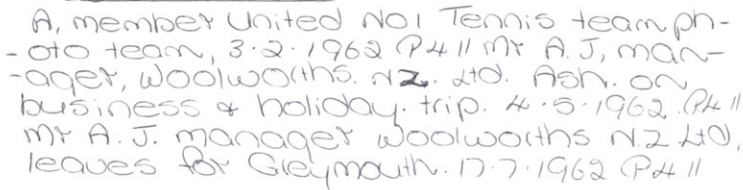 A, member United No1 Tennis team ph-
-oto team, 3.2.1962 P4 11 Mr A.J, man-
-ager, Woolworths. NZ. Ltd. Ash. on
business & holiday. trip. 4.5.1962. P4 11
Mr A.J. manager Woolworths N.Z Ltd,
leaves for Greymouth. 17.7.1962 P4 11